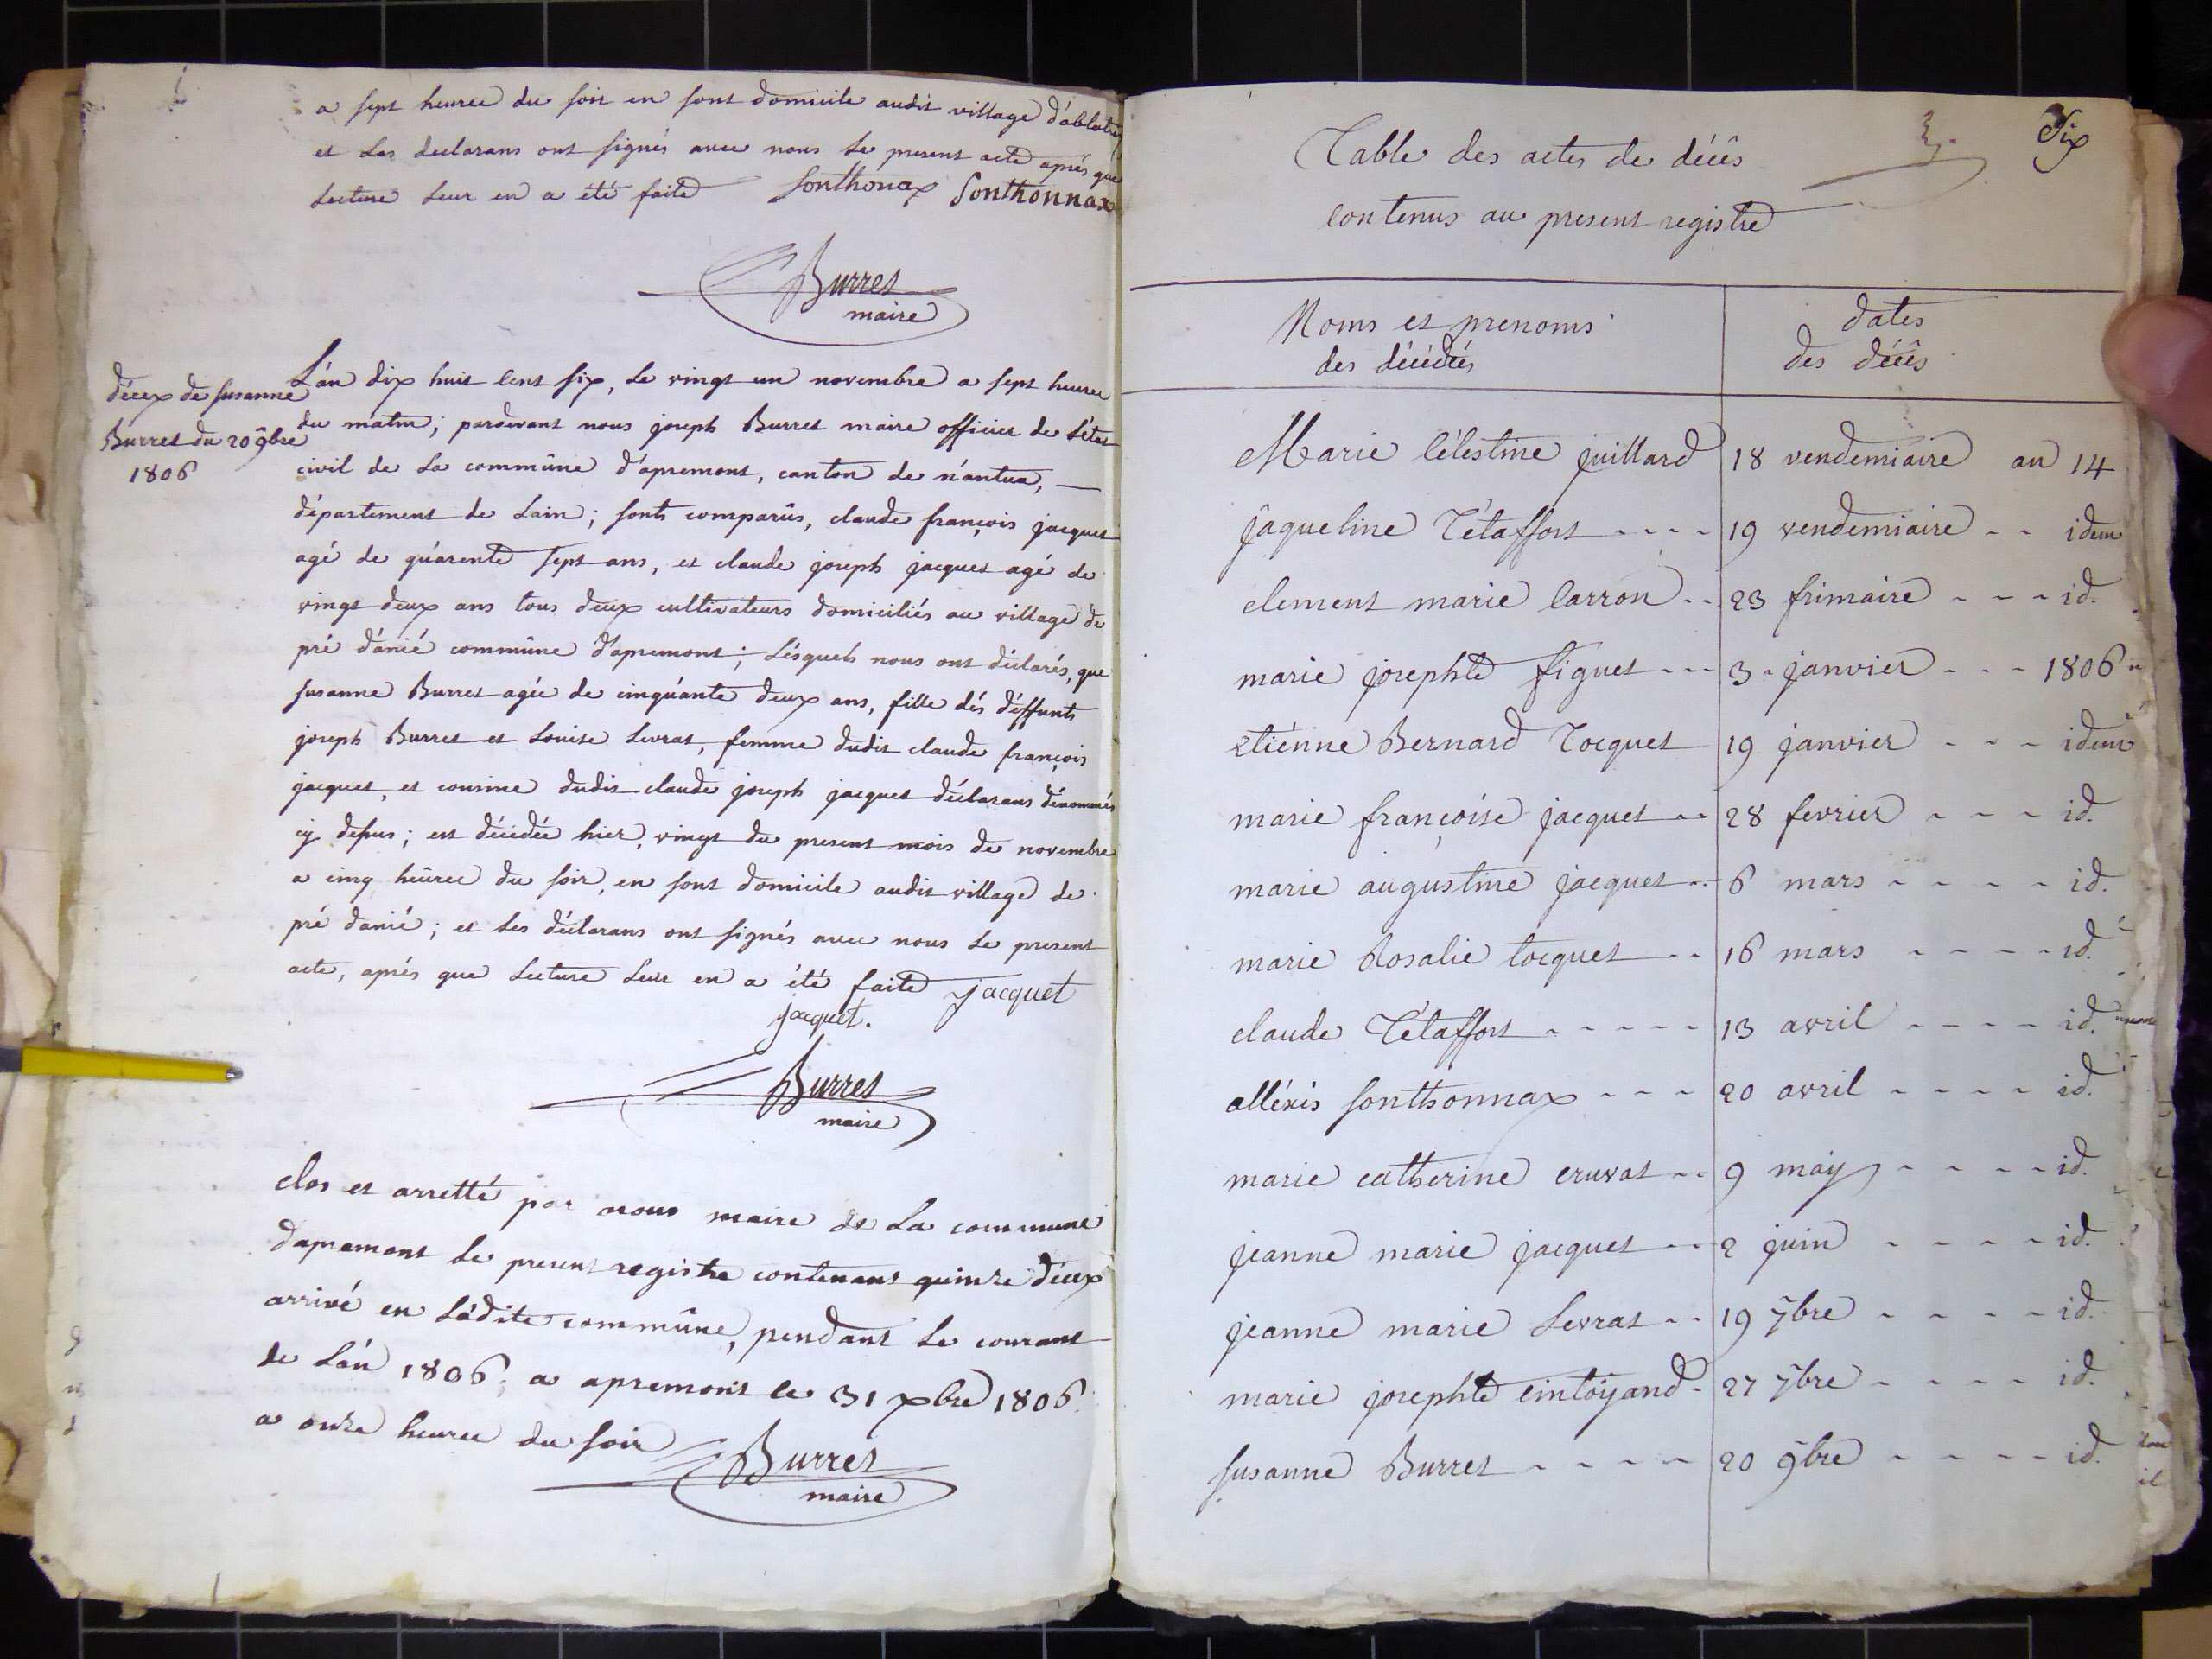 a sept heures du soir en sont domicile audit village d'ablatrix
et les declarans ont signés avec nous le present acte aprés que
lecture leur en a été faite Sonthonax Sonthonnax
Burret
maire
déces de susanne
Burret du 20 9bre
1806
L'án dix huit cent six, le vingt un novembre a sept heures
du matin; pardevant nous joseph Burret maire officier de l'état
civil de la commûne d'apremont, canton de nántua,
département de Lain; sonts comparûs, claude françois jacquet
agé de quárente sept ans, et claude joseph jacquet agé de
vingt deux ans tous deux cultivateurs domiciliés au village de
pré d'anié commûne d'apremont; Lésquels nous ont déclarés, que
susanne Burret agée de cinquánte deux ans, fille dés déffunts
joseph Burret et Louise Levrat, femme dudit claude françois
jacquet, et cousine dudit claude joseph jacquet déclarans dénommés
cy desus; est décédée hier, vingt du present mois de novembre
a cinq heûres du soir, en sont domicile audit village de
pré danié; et les déclarans ont signés avec nous le present
acte, aprés que lecture leur en a été faite jacquet
jacquet.
Burret
maire
clos et arretté par nous maire de la commune
dapremont le present registre contenant quinze déces
arrivé en ladite commûne, pendant le courant
de l'án 1806; a apremont le 31 xbre 1806
a onze heures du soir
Burret
maire
Six
Table des actes de décês
contenus au present registre
Noms et prenoms
des décédés
dates
des décês
Marie Célestine juillard 18 vendemiaire an 14
jaqueline Tétaffort - - - - 19 vendemiaire - - idem
clement marie Carron - - 23 frimaire - - - id.
marie josephte figuet - - - 3 - janvier - - - 1806
etiénne Bernard Tocquet 19 janvier - - - idem
marie françoise jacquet - - 28 fevrier - - - id.
marie augustine jacquet - - 6 mars - - - - id.
marie Rosalie tocquet - - 16 mars - - - - id.
claude Tétaffort - - - - - 13 avril - - - - id.
alléxis sonthonnax - - - 20 avril - - - - id.
marie catherine cruvat - - 9 maÿ - - - - id.
jeanne marie jacquet - - 2 juin - - - - id.
jeanne marie Levrat - - 19 7bre - - - - id.
marie josephte cintoÿand - 27 7bre - - - - id.
susanne Burret - - - - 20 9bre - - - - id.